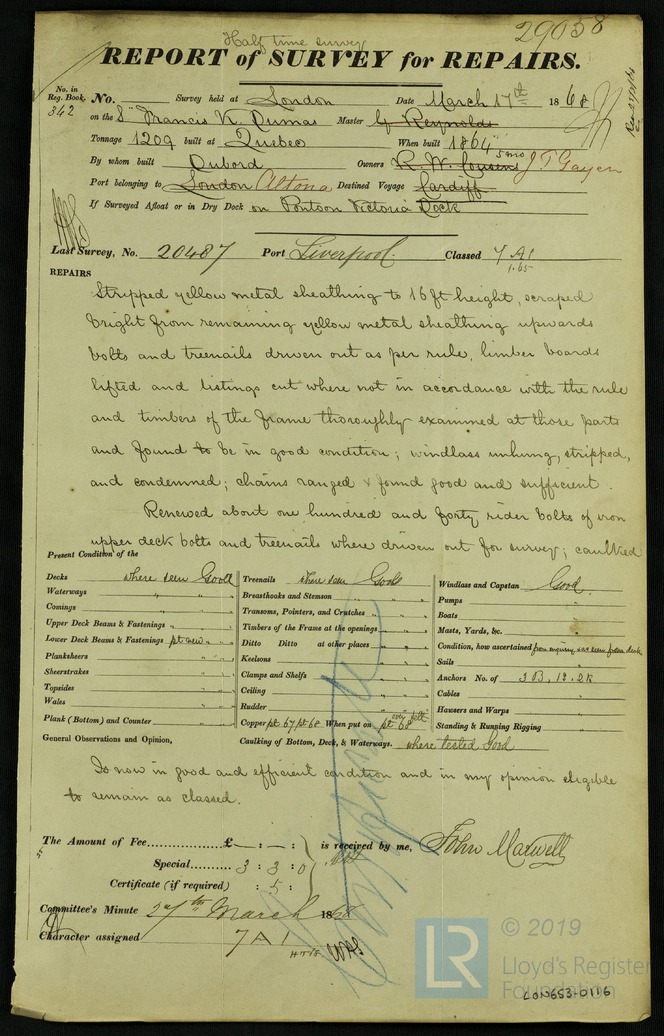 29058
Half time survey
REPORT of SURVEY for REPAIRS.
No. in Reg. Book. No. Survey held at London Date March 17th 1868
342 on the S Francis K. Dumas Master G Reynolds
Tonnage 1209 built at Quebec When built 1864 5mo
By whom built Dubord Owners R. W. Cousens J T Gayen
Port belonging to London Altona Destined Voyage Cardiff
If Surveyed Afloat or in Dry Dock on Pontoon Victoria Dock
Last Survey, No. 20487 Port Liverpool. Classed 7 A1
1.65
REPAIRS
Stripped yellow metal sheathing to 16 ft height, scraped
bright from remaining yellow metal sheathing upwards
bolts and treenails driven out as per rule, limber boards
lifted and listings cut where not in accordance with the rule
and timbers of the frame thoroughly examined at those parts
and found to be in good condition; windlass unhung, stripped,
and condemned; chains ranged & found good and sufficient.
Renewed about one hundred and forty rider bolts of iron
upper deck bolts and treenails where driven out for survey; caulked
Present Condition of the
Decks where seen Good
Waterways " "
Comings " "
Upper Deck Beams & Fastenings " "
Lower Deck Beams & Fastenings pt new " "
Planksheers " "
Sheerstrakes " "
Topsides " "
Wales " "
Plank (Bottom) and Counter " "
Treenails where seen Good
Breasthooks and Stemson " "
Transoms, Pointers, and Crutches " "
Timbers of the Frame at the openings " "
Ditto Ditto at other places " "
Keelsons " "
Clamps and Shelfs " "
Ceiling " "
Rudder " "
Copper pt 67 pt 68 When put on pt 68 over felt
Windlass and Capstan Good.
Pumps "
Boats "
Masts, Yards, &c. "
Condition, how ascertained from enquiry & as seen from deck
Sails "
Anchors No. of 3B, 1S, 2K
Cables "
Hawsers and Warps "
Standing & Running Rigging "
General Observations and Opinion,
Caulking of Bottom, Deck, & Waterways. where tested Good
Is now in good and efficient condition and in my opinion eligible
to remain as classed.
The Amount of Fee £ — : — : is received by me, John Maxwell
Special 3 : 3 : 0
Certificate (if required) : 5 :
Committee's Minute 27th March 1868
Character assigned 7 A 1
© 2019
LR
Lloyd's Register
Foundation
LON653-0116